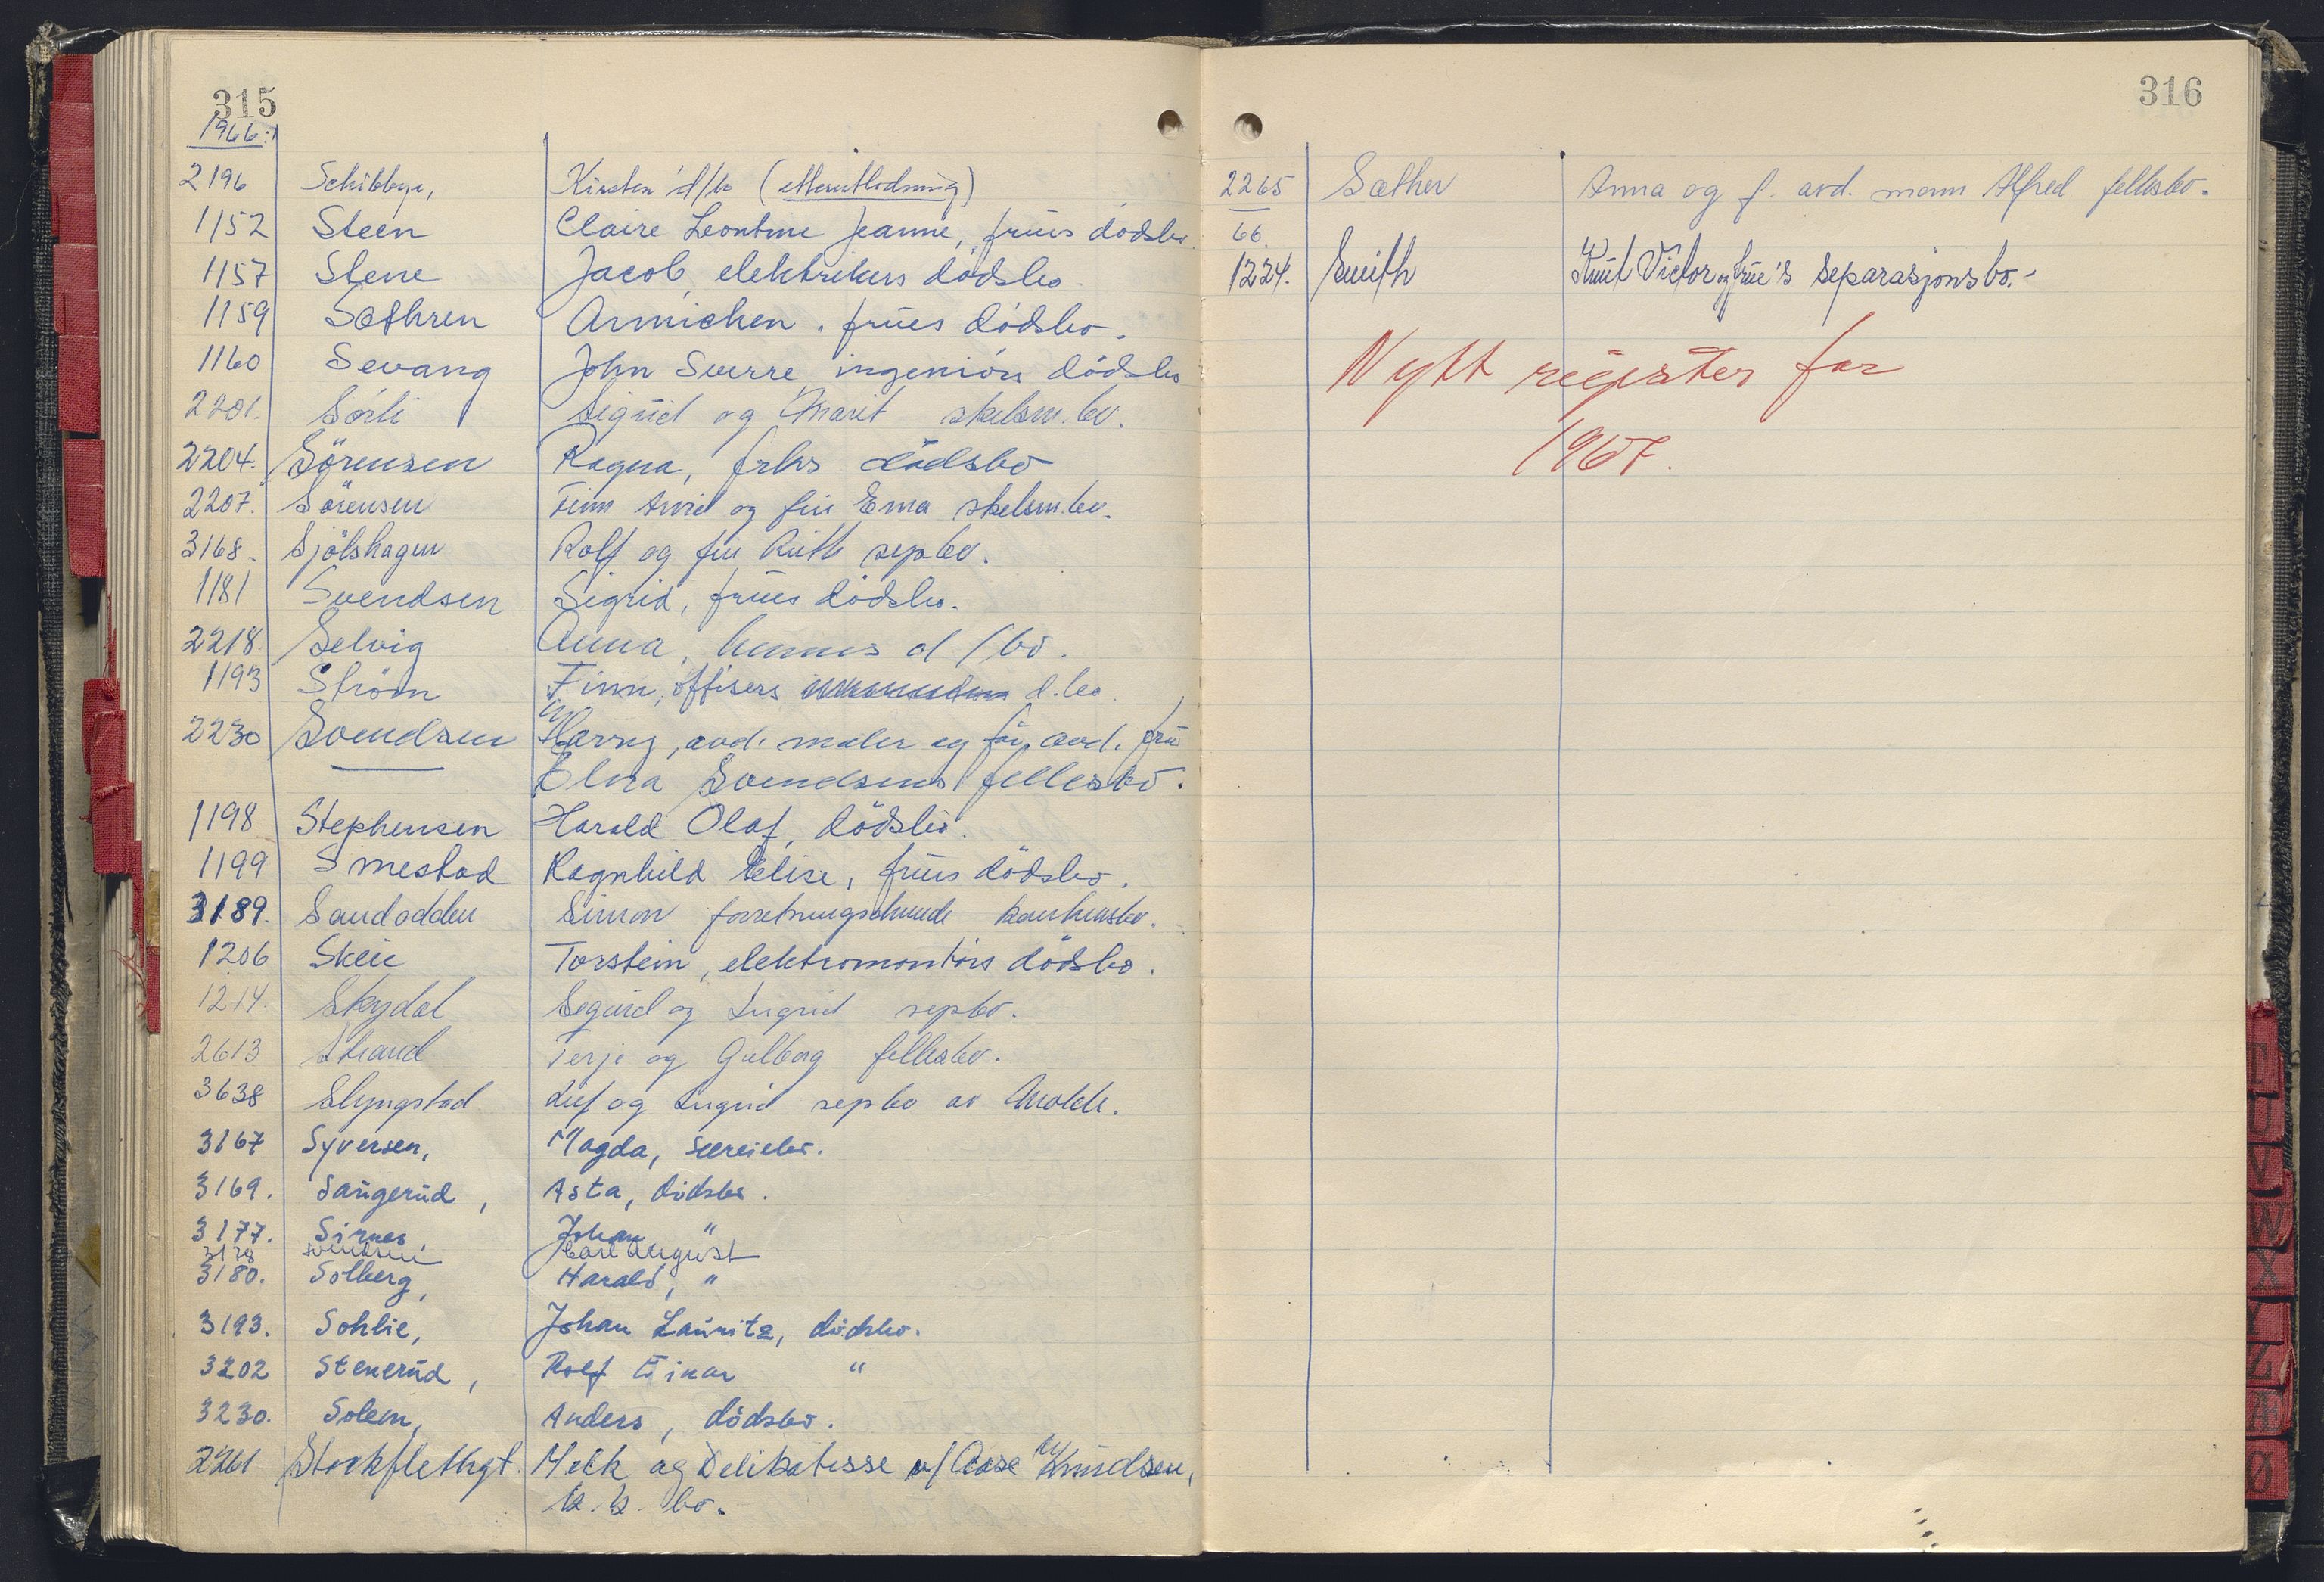 315
1966:
2196 Schibbye, Kirsten d/bo (etterutlodning)
1152 Steen Claire Leontine Jeanne, frues dödsbo
1157 Stene Jacob, elektrikers dödsbo
1159 Sæthren Annichen, frues dödsbo.
1160 Sevang John Sverre, ingeniörs dödsbo
2201. Sörli Sigrid og Marit skilsm.bo.
2204. Sörensen Ragna, frks dödsbo
2207. Sörensen Finn Arvid og fru Erna skilsm.bo.
3168. Sjölshagen Rolf og fru Ruth sepbo.
1181 Svendsen Sigrid, frues dödsbo.
2218. Selvig Anna, hennes d/bo.
1193 Ström Finn, offisers d.bo.
2230 Svendsen Harry, avd. maler og før avd. frue
Elna Svendsens fellesbo.
1198 Stephensen Harald Olaf, dödsbo.
1199 Smestad Ragnhild Elise, frues dödsbo.
3189. Sandodden Simon forretningsdrivende konkursbo.
1206 Skeie Torstein, elektromontörs dödsbo.
1214. Skydal Sigurd og Ingrid sepbo.
2613 Strand Terje og Gulborg fellesbo.
3638 Slyngstad Leif og Ingrid sepbo av Molde.
3167 Syversen, Magda,
3169. Saugerud, Asta, dödsbo.
3177. Sirnes, Johan "
3178 Svendsen Carl August
3180. Solberg, Harald, "
3193. Sohlie, Johan Lauritz, dödsbo.
3202 Stenerud, Rolf Einar "
3230. Solem, Anders, dödsbo.
2261 Stockflethgt. Melk og Delikatesse v/ Aase Knudsen,
k.k. bo.
316
2265 Sæther Anna og f. avd. mann Alfred fellesbo.
66.
1224. Smith Knut Victor og frue's separasjonsbo.-
Nytt register for
1967.
T
U
V
W
X
Y
Z
Æ
Ø